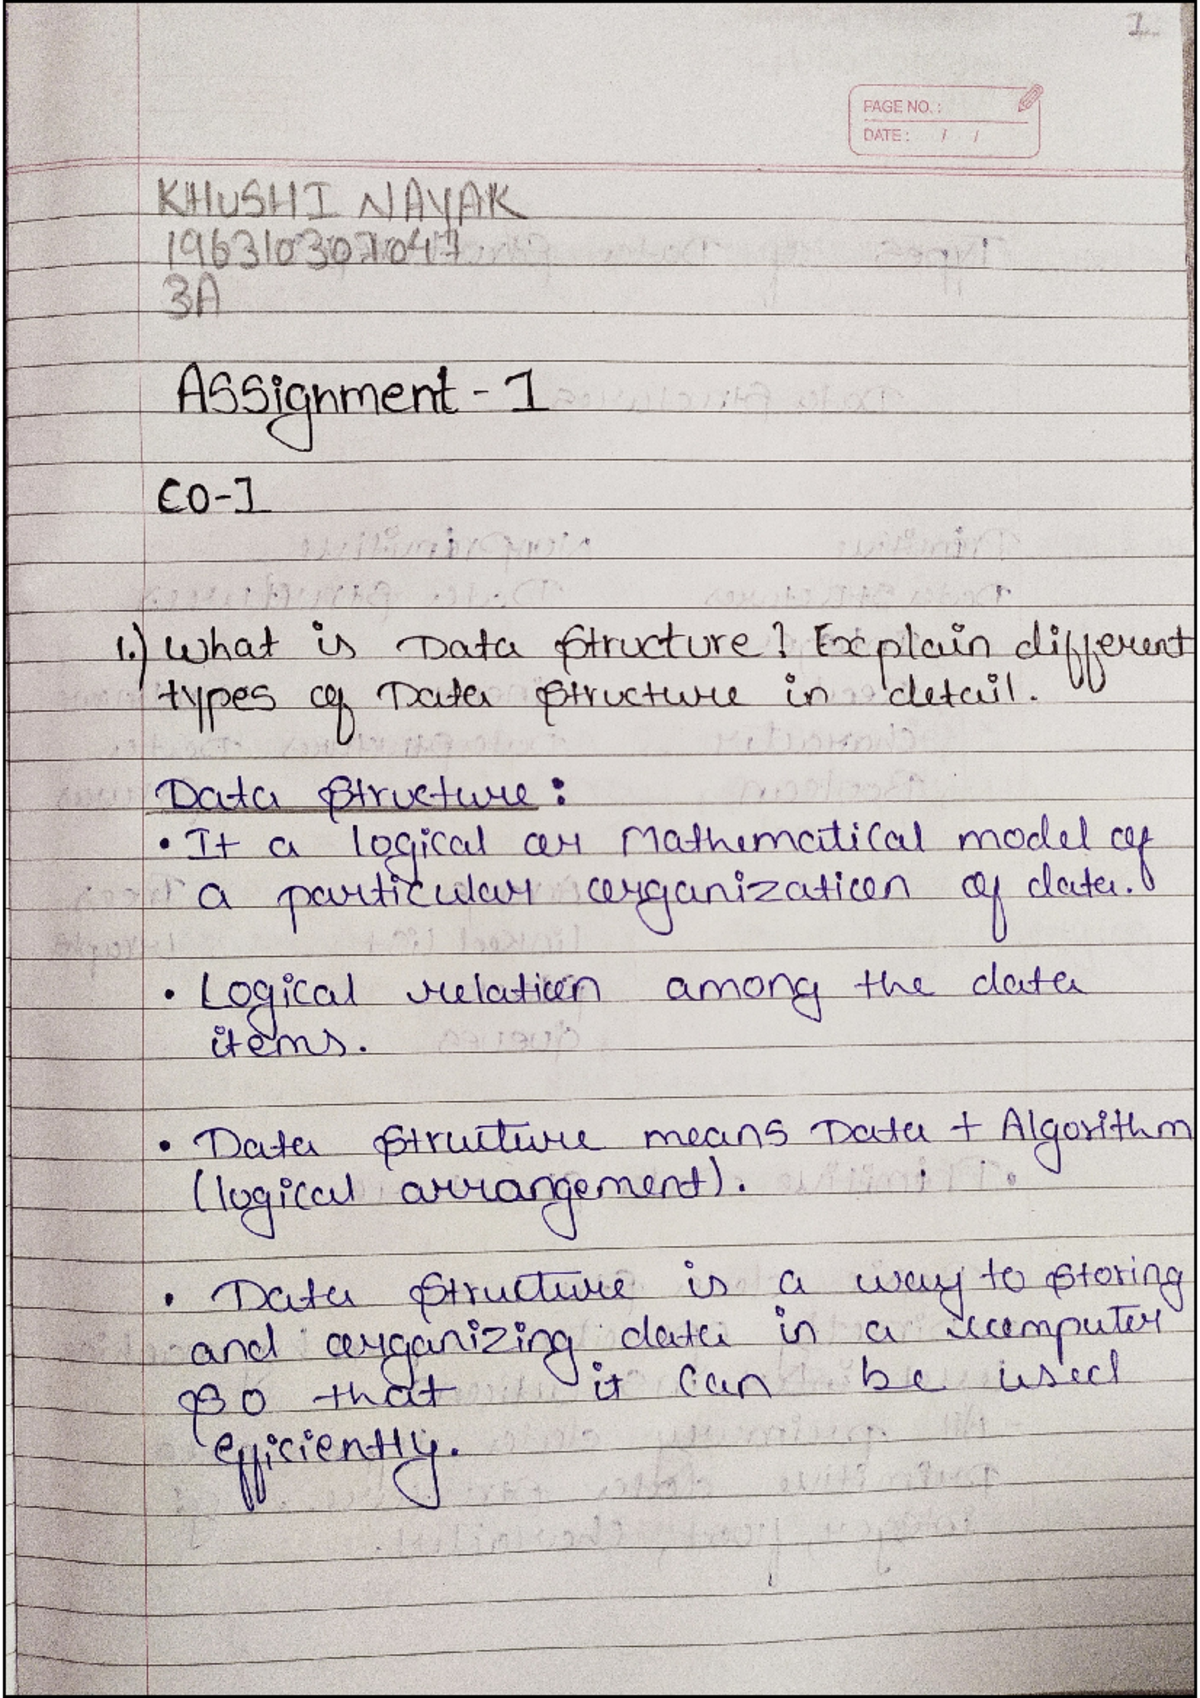 1
PAGE NO.:
DATE: / /
KHUSHI NAYAK
196310307047
3A
Assignment - 1
CO-1
1.) What is Data Structure? Explain different
types of Data Structure in detail.
Data Structure:
• It a logical or Mathematical model of
a particular organization of data.
• Logical relation among the data
items.
• Data Structure means Data + Algorithm
(logical arrangement).
• Data Structure is a way to storing
and organizing data in a computer
so that it can be used
efficiently.